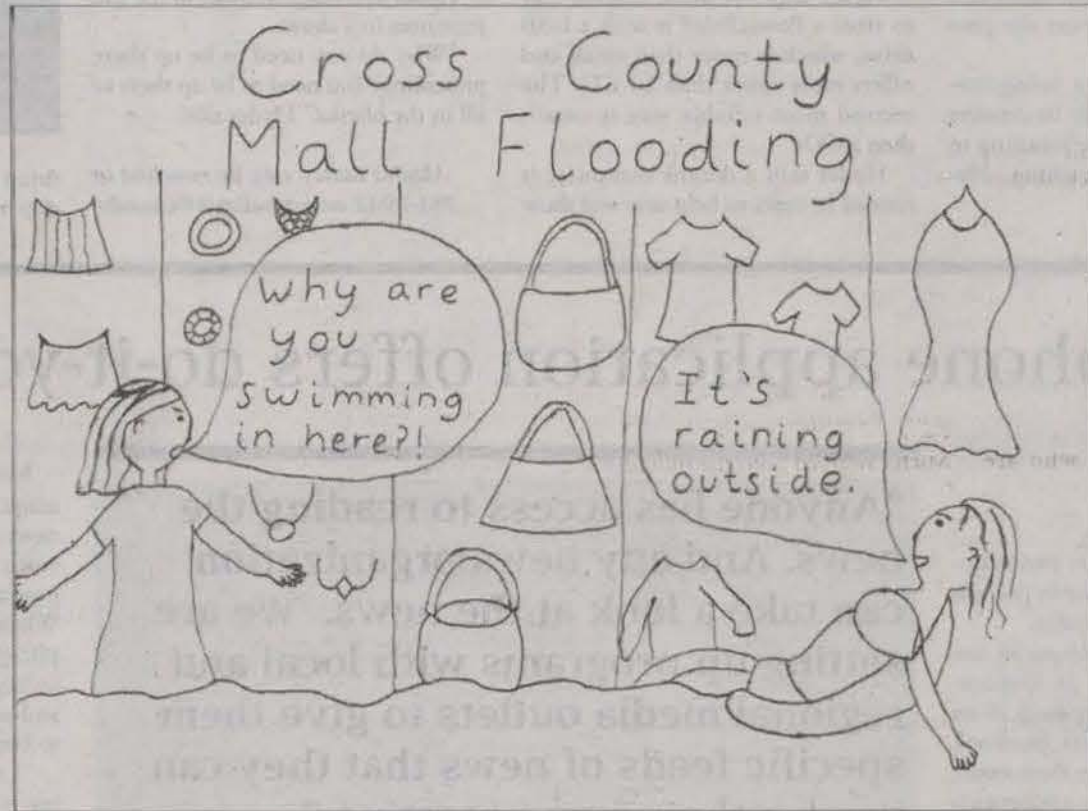 Cross County
Mall Flooding
Why are
you
swimming
in here?!
It's
raining
outside.